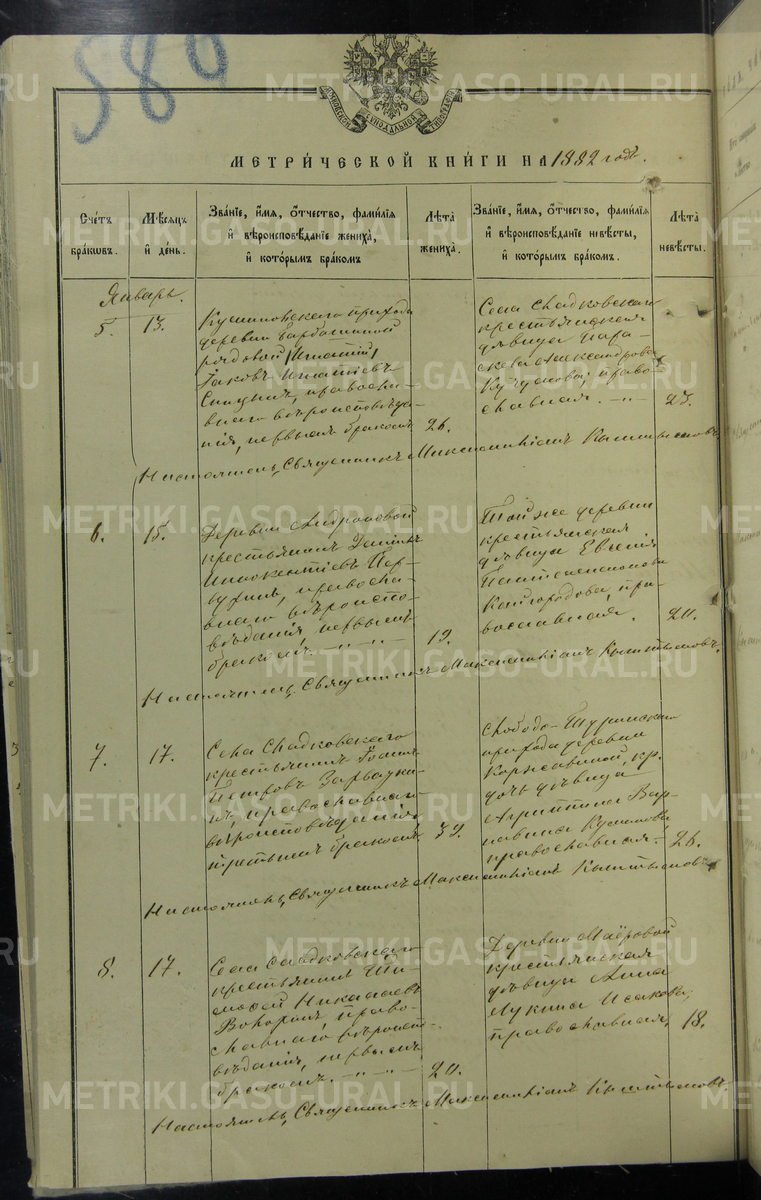 589
МЕТРИ́ЧЕСКОЙ КНИ́ГИ НА 1882 годъ.
Сче́тъ бра́ковъ.
Мѣ́сяцъ и҆ де́нь.
Зва́нїе, и҆́мя, ѻ҆́тчество, фами́лїя и҆ вѣроисповѣ́данїе жениха̀, и҆ кото́рымъ бра́комъ
Лѣ́та жениха̀.
Зва́нїе, и҆́мя, ѻ҆́тчество, фами́лїя и҆ вѣроисповѣ́данїе невѣ́сты, и҆ кото́рымъ бра́комъ.
Лѣ́та невѣ́сты.
Январь.
5.
13.
прихода
деревни
рядовой (Игнатій)
Іаковъ Игнатіевъ
Спицынъ, правосла-
внаго вѣроисповѣда-
нія, первымъ бракомъ
26.
Села Сладковскаго
крестьянская
дѣвица Пара-
скева Александрова
православная.
23.
Настоятель, Священникъ Максимиліанъ
6.
15.
Деревни Андроновой
крестьянинъ Даніилъ
Иннокентіевъ Пер-
вухинъ, правосла-
внаго вѣроиспо-
вѣданія, первымъ
бракомъ.
19.
Той же деревни
крестьянская
дѣвица Евгенія
Пантелеимонова
Кайгородова, пра-
вославная.
20.
Настоятель, Священникъ Максимиліанъ
7.
17.
Села Сладковскаго
крестьянинъ Іоаннъ
Петровъ
православнаго
вѣроисповѣданія,
третьимъ бракомъ.
39.
Слободо-Туринскаго
прихода деревни
Коржавиной, кр.
дочь дѣвица
Агриппина Вар-
навина
православная.
26.
Настоятель, Священникъ Максимиліанъ
8.
17.
Села Сладковскаго
крестьянинъ Ти-
моѳей Николаевъ
право-
славнаго вѣроиспо-
вѣданія, первымъ
бракомъ.
20.
Деревни Маёровой
крестьянская
дѣвица Анна
Лукина Исакова,
православная,
18.
Настоятель, Священникъ Максимиліанъ
METRIKI.GASO-URAL.RU